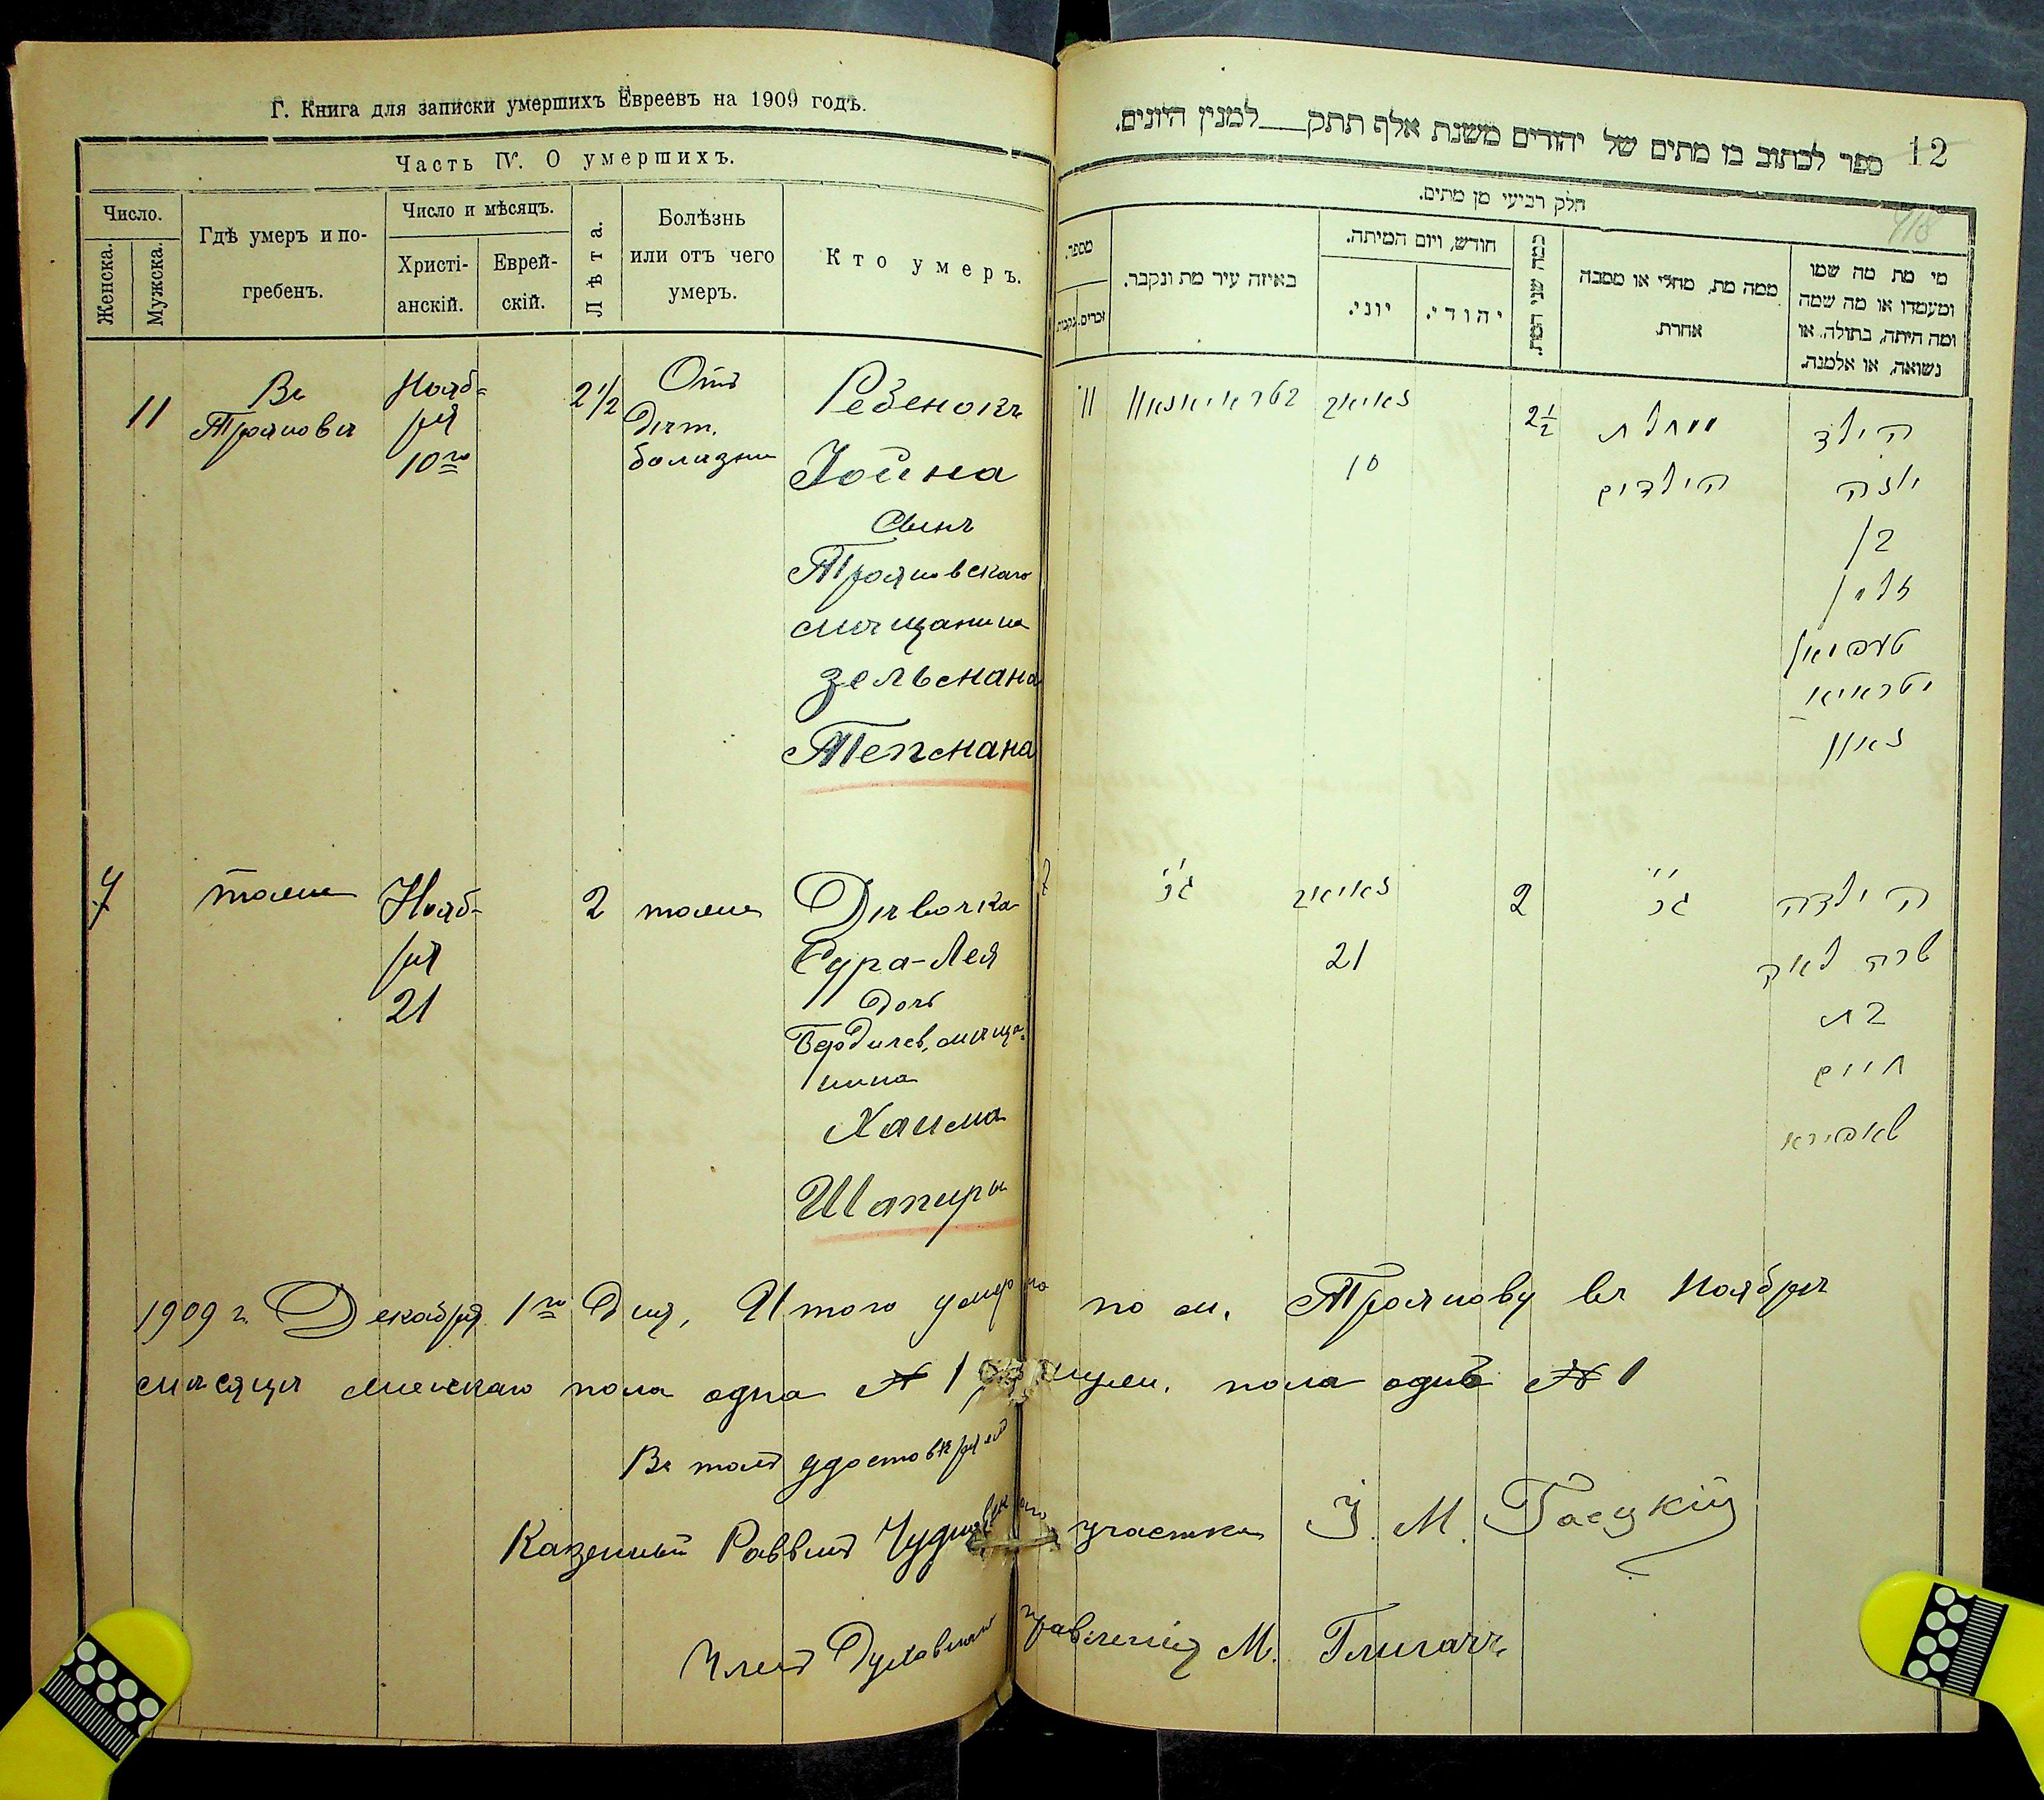 Г. Книга для записки умершихъ Евреевъ на 1909 годъ.
Часть IV. О умершихъ.
Число.
Женска.
Мужска.
Гдѣ умеръ и по-
гребенъ.
Число и мѣсяцъ.
Христі-
анскій.
Еврей-
скій.
Лѣта.
Болѣзнь
или отъ чего
умеръ.
Кто умеръ.
11
Въ
Трояновѣ
Нояб-
ря
10го
2 1/2
Отъ
Дѣт.
болѣзни
Ребенокъ
Іойна
Сынъ
Трояновскаго
мѣщанина
Зельмана
Тепмана
7
тоже
Нояб-
ря
21
2
тоже
Дѣвочка
Сура-Лея
дочь
Бердичев. мѣща-
нина
Хаима
Шапиры
12
ספר לכתוב בו מתים של יהודים משנת אלף תתק___למנין היונים.
חלק רביעי מן מתים.
מספר.
זכרים.
נקבות
באיזה עיר מת ונקבר.
חודש, ויום המיתה.
יוני.
יהודי.
כמה שני המת.
ממה מת, מחלי או מסבה
אחרת.
מי מת מה שמו
ומעמדו או מה שמה
ומה היתה, בתולה, או
נשואה, או אלמנה.
11
10
2 1/2
הילדים
הילד
יונה
בן
זלמן
7
21
2
הילדה
שרה לאה
בת
חיים
שאפירא
1909 г. Декабря 1го дня, Итого умерло по м. Троянову въ Ноябрѣ
мѣсяцѣ женскаго пола одна № 1 муж. пола одинъ № 1
Въ томъ удостовѣряемъ
Казенный Раввинъ Чудновскаго участка І. М.
Членъ Духовнаго правленія М.